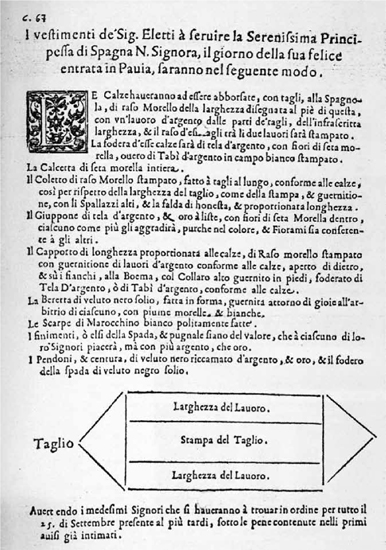 C. 67
I vestimenti de' Sig. Eletti à seruire la Serenissima Princi-
pessa di Spagna N. Signora, il giorno della sua felice
entrata in Pauia, saranno nel seguente modo.
LE Calze haueranno ad essere abborsate, con tagli, alla Spagno-
la, di raso Morello della larghezza disegnata al piè di questa,
con vn'lauoro d'argento dalle parti de' tagli, dell'infrascritta
larghezza, & il raso d'essi tagli trà li due lauori sarà stampato.
La fodera d'esse calze sarà di tela d'argento, con fiori di seta mo-
rella, ouero di Tabì d'argento in campo bianco stampato.
La Calcetta di seta morella intiera.
Il Coletto di raso Morello stampato, fatto à tagli al lungo, conforme alle calze,
così per rispetto della larghezza del taglio, come della stampa, & guernitio-
ne, con li Spallazzi alti, & la falda di honesta, & proportionata longhezza.
Il Giuppone di tela d'argento, & oro à liste, con fiori di seta Morella dentro,
ciascuno come più gli aggradirà, purche nel colore, & Fiorami sia conferen-
te à gli altri.
Il Cappotto di longhezza proportionata alle calze, di Raso morello stampato
con guernitione di lauori d'argento conforme alle calze, aperto di dietro,
& sù i fianchi, alla Boema, col Collaro alto guernito in piedi, foderato di
Tela D'argento, ò di Tabì d'argento, conforme alle calze.
La Beretta di veluto nero solio, fatta in forma, guernita attorno di gioie all'ar-
bitrio di ciascuno, con piume morelle & bianche.
Le Scarpe di Marocchino bianco politamente fatte.
I finimenti, ò elsi della Spada, & pugnale siano del valore, che à ciascuno di lo-
ro Signori piacerà, mà con più argento, che oro.
I Pendoni, & centura, di veluto nero riccamato d'argento, & oro, & il fodero
della spada di veluto negro solio.
Larghezza del Lauoro.
Taglio
Stampa del Taglio.
Larghezza del Lauoro.
Auertendo i medesimi Signori che si haueranno à trouar in ordine per tutto il
25. di Settembre presente al più tardi, sotto le pene contenute nelli primi
auisi già intimati.